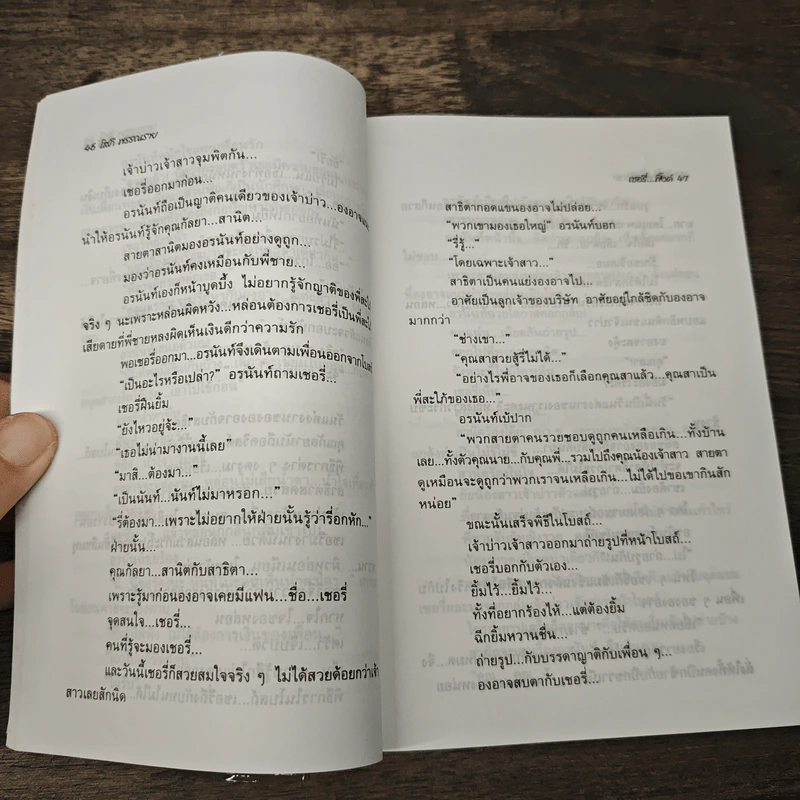 ๔๖ โสภี พรรณราย
เจ้าบ่าวเจ้าสาวจุมพิตกัน...
เชอรี่ออกมาก่อน...
อรนันท์ถือเป็นญาติคนเดียวของเจ้าบ่าว...องอาจแนะ
นำให้อรนันท์รู้จักคุณกัลยา...สานิต...
สายตาสานิตมองอรนันท์อย่างดูถูก...
มองว่าอรนันท์คงเหมือนกับพี่ชาย...
อรนันท์เองก็หน้าบูดบึ้ง ไม่อยากรู้จักญาติของพี่สะใภ้
จริง ๆ นะเพราะหล่อนผิดหวัง...หล่อนต้องการเชอรี่เป็นพี่สะใภ้
เสียดายที่พี่ชายหลงผิดเห็นเงินดีกว่าความรัก
พอเชอรี่ออกมา...อรนันท์จึงเดินตามเพื่อนออกจากโบสถ์
“เป็นอะไรหรือเปล่า?” อรนันท์ถามเชอรี่...
เชอรี่ฝืนยิ้ม
“ยังไหวอยู่จ้ะ...”
“เธอไม่น่ามางานนี้เลย”
“มาสิ...ต้องมา...”
“เป็นนันท์...นันท์ไม่มาหรอก...”
“รี่ต้องมา...เพราะไม่อยากให้ฝ่ายนั้นรู้ว่ารี่อกหัก...”
ฝ่ายนั้น...
คุณกัลยา...สานิตกับสาธิตา...
เพราะรู้มาก่อนองอาจเคยมีแฟน...ชื่อ...เชอรี่
จุดสนใจ...เชอรี่...
คนที่รู้จะมองเชอรี่...
และวันนี้เชอรี่ก็สวยสมใจจริง ๆ ไม่ได้สวยด้อยกว่าเจ้า
สาวเลยสักนิด
เชอรี่...ที่รัก ๔๗
สาธิตากอดแขนองอาจไม่ปล่อย...
“พวกเขามองเธอใหญ่” อรนันท์บอก
“รี่รู้...”
“โดยเฉพาะเจ้าสาว...”
สาธิตาเป็นคนแย่งองอาจไป...
อาศัยเป็นลูกเจ้าของบริษัท อาศัยอยู่ใกล้ชิดกับองอาจ
มากกว่า
“ช่างเขา...”
“คุณสาสวยสู้รี่ไม่ได้...”
“อย่างไรพี่อาจของเธอก็เลือกคุณสาแล้ว...คุณสาเป็น
พี่สะใภ้ของเธอ...”
อรนันท์เบ้ปาก
“พวกสายตาคนรวยชอบดูถูกคนเหลือเกิน...ทั้งบ้าน
เลย...ทั้งตัวคุณนาย...กับคุณพี่...รวมไปถึงคุณน้องเจ้าสาว สายตา
ดูเหมือนจะดูถูกว่าพวกเราจนเหลือเกิน...ไม่ได้ไปขอเขากินสัก
หน่อย”
ขณะนั้นเสร็จพิธีในโบสถ์...
เจ้าบ่าวเจ้าสาวออกมาถ่ายรูปที่หน้าโบสถ์...
เชอรี่บอกกับตัวเอง...
ยิ้มไว้...ยิ้มไว้...
ทั้งที่อยากร้องไห้...แต่ต้องยิ้ม
ฉีกยิ้มหวานชื่น...
ถ่ายรูป...กับบรรดาญาติกับเพื่อน ๆ...
องอาจสบตากับเชอรี่...